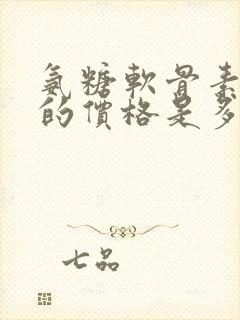 氨糖軟骨素
的價格是多
七品